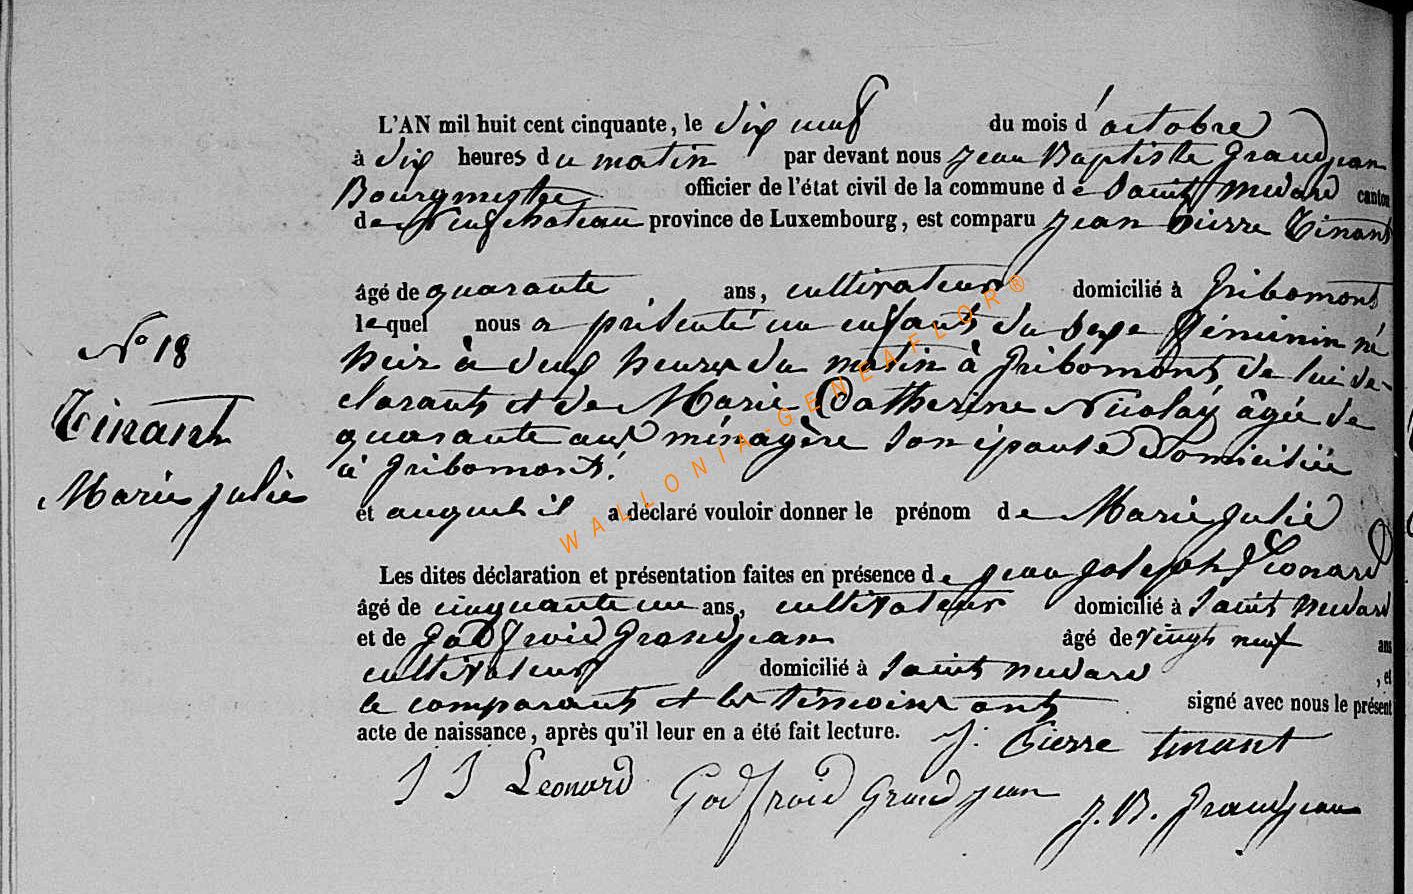 L'AN mil huit cent cinquante, le dix neuf du mois d'octobre
à dix heures du matin par devant nous Jean Baptiste Grandjean
Bourgmestre officier de l'état civil de la commune de Saint Medard canton
de Neufchateau province de Luxembourg, est comparu Jean Pierre Tinant
âgé de quarante ans, cultivateur domicilié à Gribomont
lequel nous a présenté un enfant du sexe féminin né
hier à deux heures du matin à Gribomont de lui dé-
clarant et de Marie Catherine Nicolay âgée de
quarante ans ménagère son épouse domiciliée
à Gribomont.
et auquel il a déclaré vouloir donner le prénom de Marie Julie
Les dites déclaration et présentation faites en présence de Jean Joseph Léonard
âgé de cinquante un ans, cultivateur domicilié à Saint Medard
et de Godfroid Grandjean âgé de vingt neuf ans
cultivateur domicilié à Saint Medard, et
le comparant et les témoins ont signé avec nous le présent
acte de naissance, après qu'il leur en a été fait lecture. J. Pierre tinant
J J Leonard Godfroid Grandjean J. B. Grandjean
N° 18
Tinant
Marie Julie
WALLONIA-GENEAFLOR®